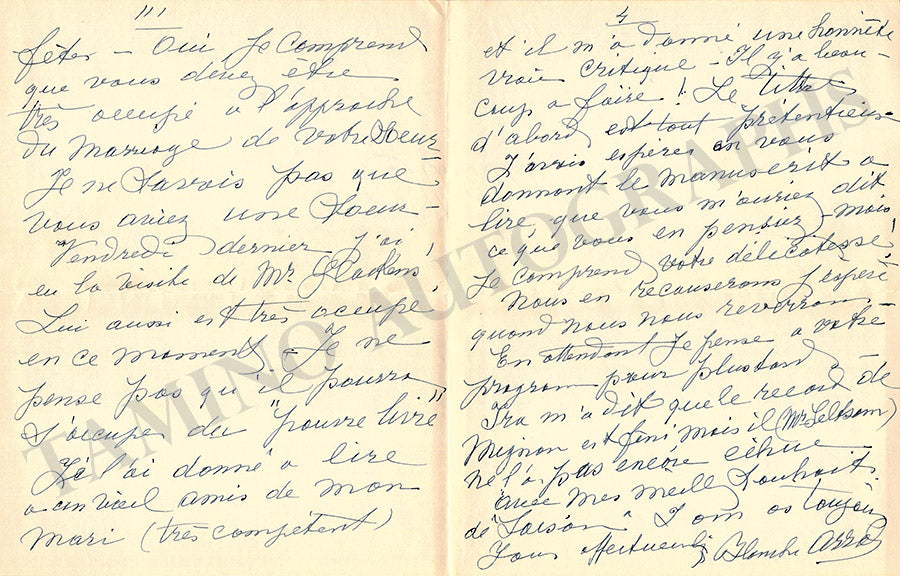 III
fêter – Oui je comprend
que vous devez être
très occupé a l'approche
du marriage de votre soeur –
Je ne savais pas que
vous aviez une soeur –
Vendredi dernier j'ai
eu la visite de Mr. Glackens!
Lui aussi est très occupé,
en ce moment – Je ne
pense pas qu'il pourra
s'occuper du "pauvre livre"
Je l'ai donné a lire
a un vieil amis de mon
mari (très compétent)
4
et il m'a donné une honnête
vraie critique – Il y a beau-
coup a faire! Le titre
d'abord est tout prétentieux
J'avais espéres en vous
donnant le manuscrit a
lire, que vous m'auriez dit
ce que vous en pensiez – mais
je comprend votre délicatesse!
Nous en recauserons j'espère
quand nous nous reverrons –
En attendant je pense a votre
program pour plus tard –
Ira m'a dit que le record de
Mignon est fini mais il (Mr Seltsam)
ne l'a pas encore
avec mes meill souhaits
de "Saison"
Yours affectueu Blanche Arral
TAMINO AUTOGRAPHS